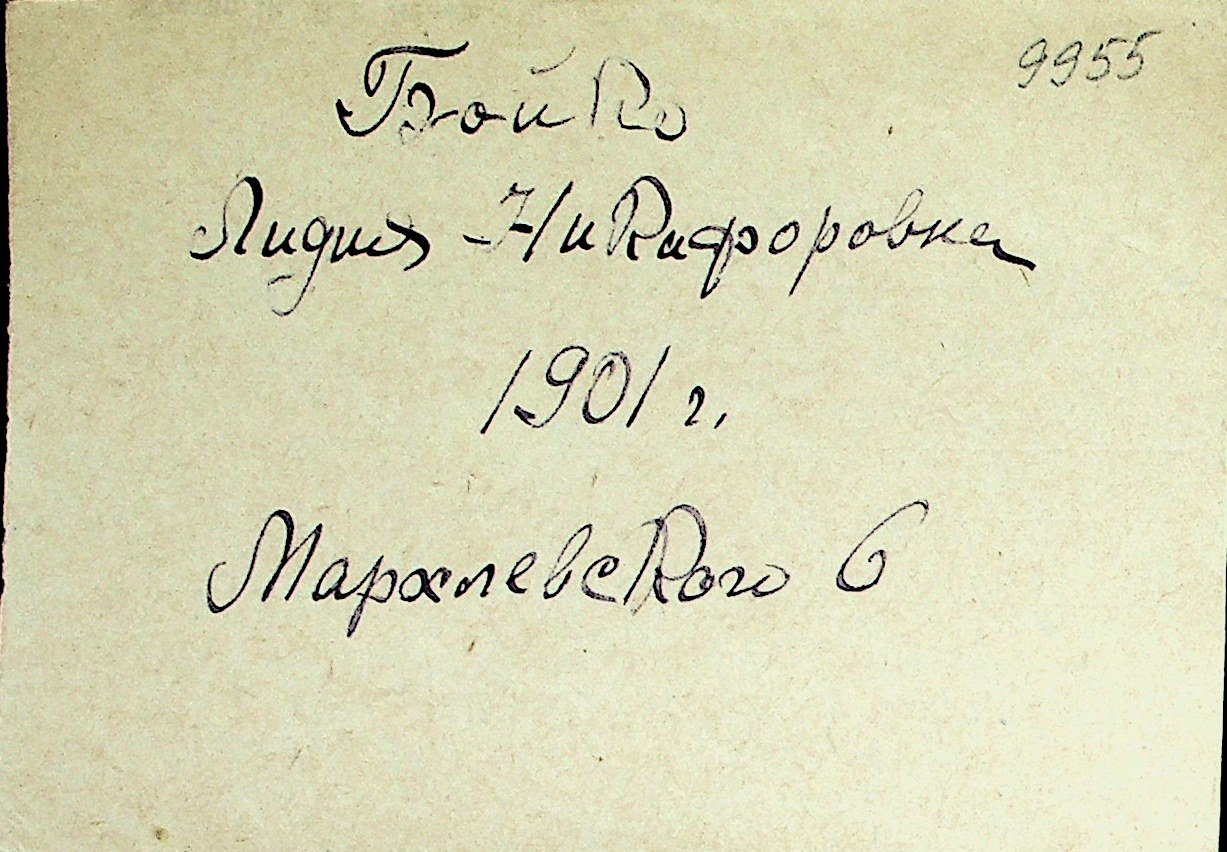 9955
Бойко
Лидия Никифоровна
1901 г.
Мархлевского 6